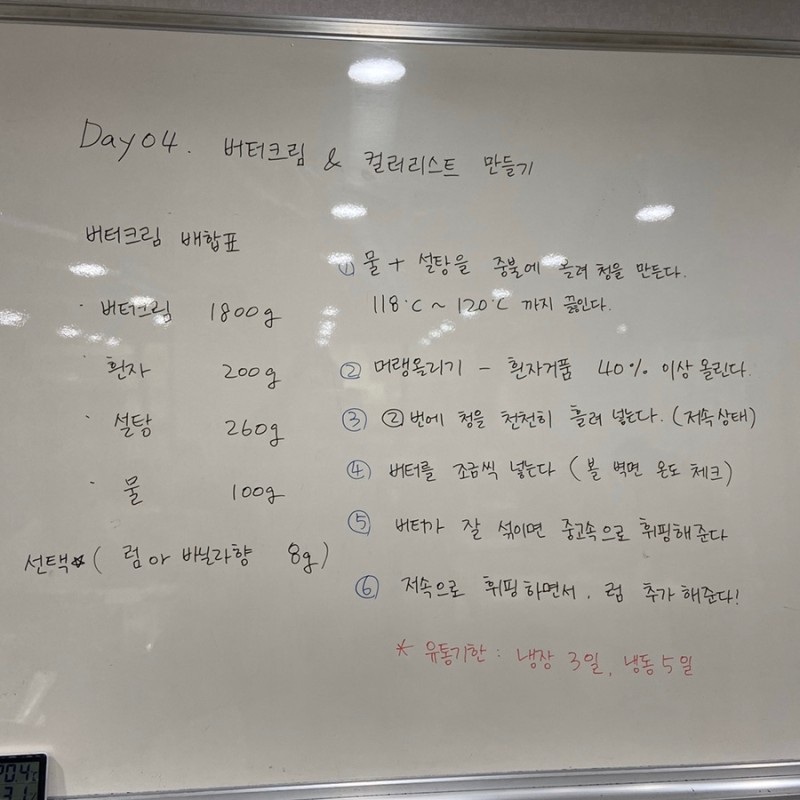 Day 04. 버터크림 & 컬러리스트 만들기
버터크림 배합표
· 버터크림 1800g
· 흰자 200g
· 설탕 260g
· 물 100g
선택* ( 럼 or 바닐라향 8g)
① 물 + 설탕을 중불에 올려 청을 만든다.
118°C ~ 120°C 까지 끓인다.
② 머랭올리기 - 흰자거품 40% 이상 올린다.
③ ②번에 청을 천천히 흘려 넣는다. (저속상태)
④ 버터를 조금씩 넣는다 ( 볼 벽면 온도 체크)
⑤ 버터가 잘 섞이면 중고속으로 휘핑해준다
⑥ 저속으로 휘핑하면서, 럼 추가해준다!
* 유통기한 : 냉장 3일, 냉동 5일